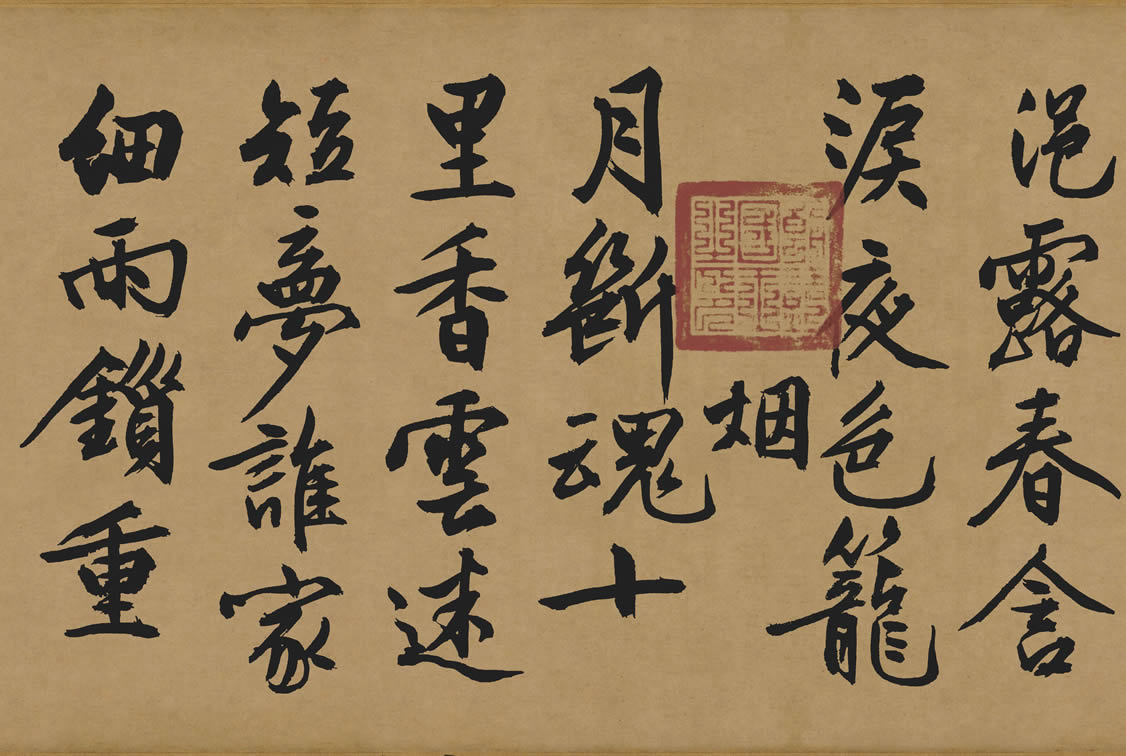 浥露春含
淚夜色籠
烟
月斷魂十
里香雲迷
短夢誰家
細雨鎖重